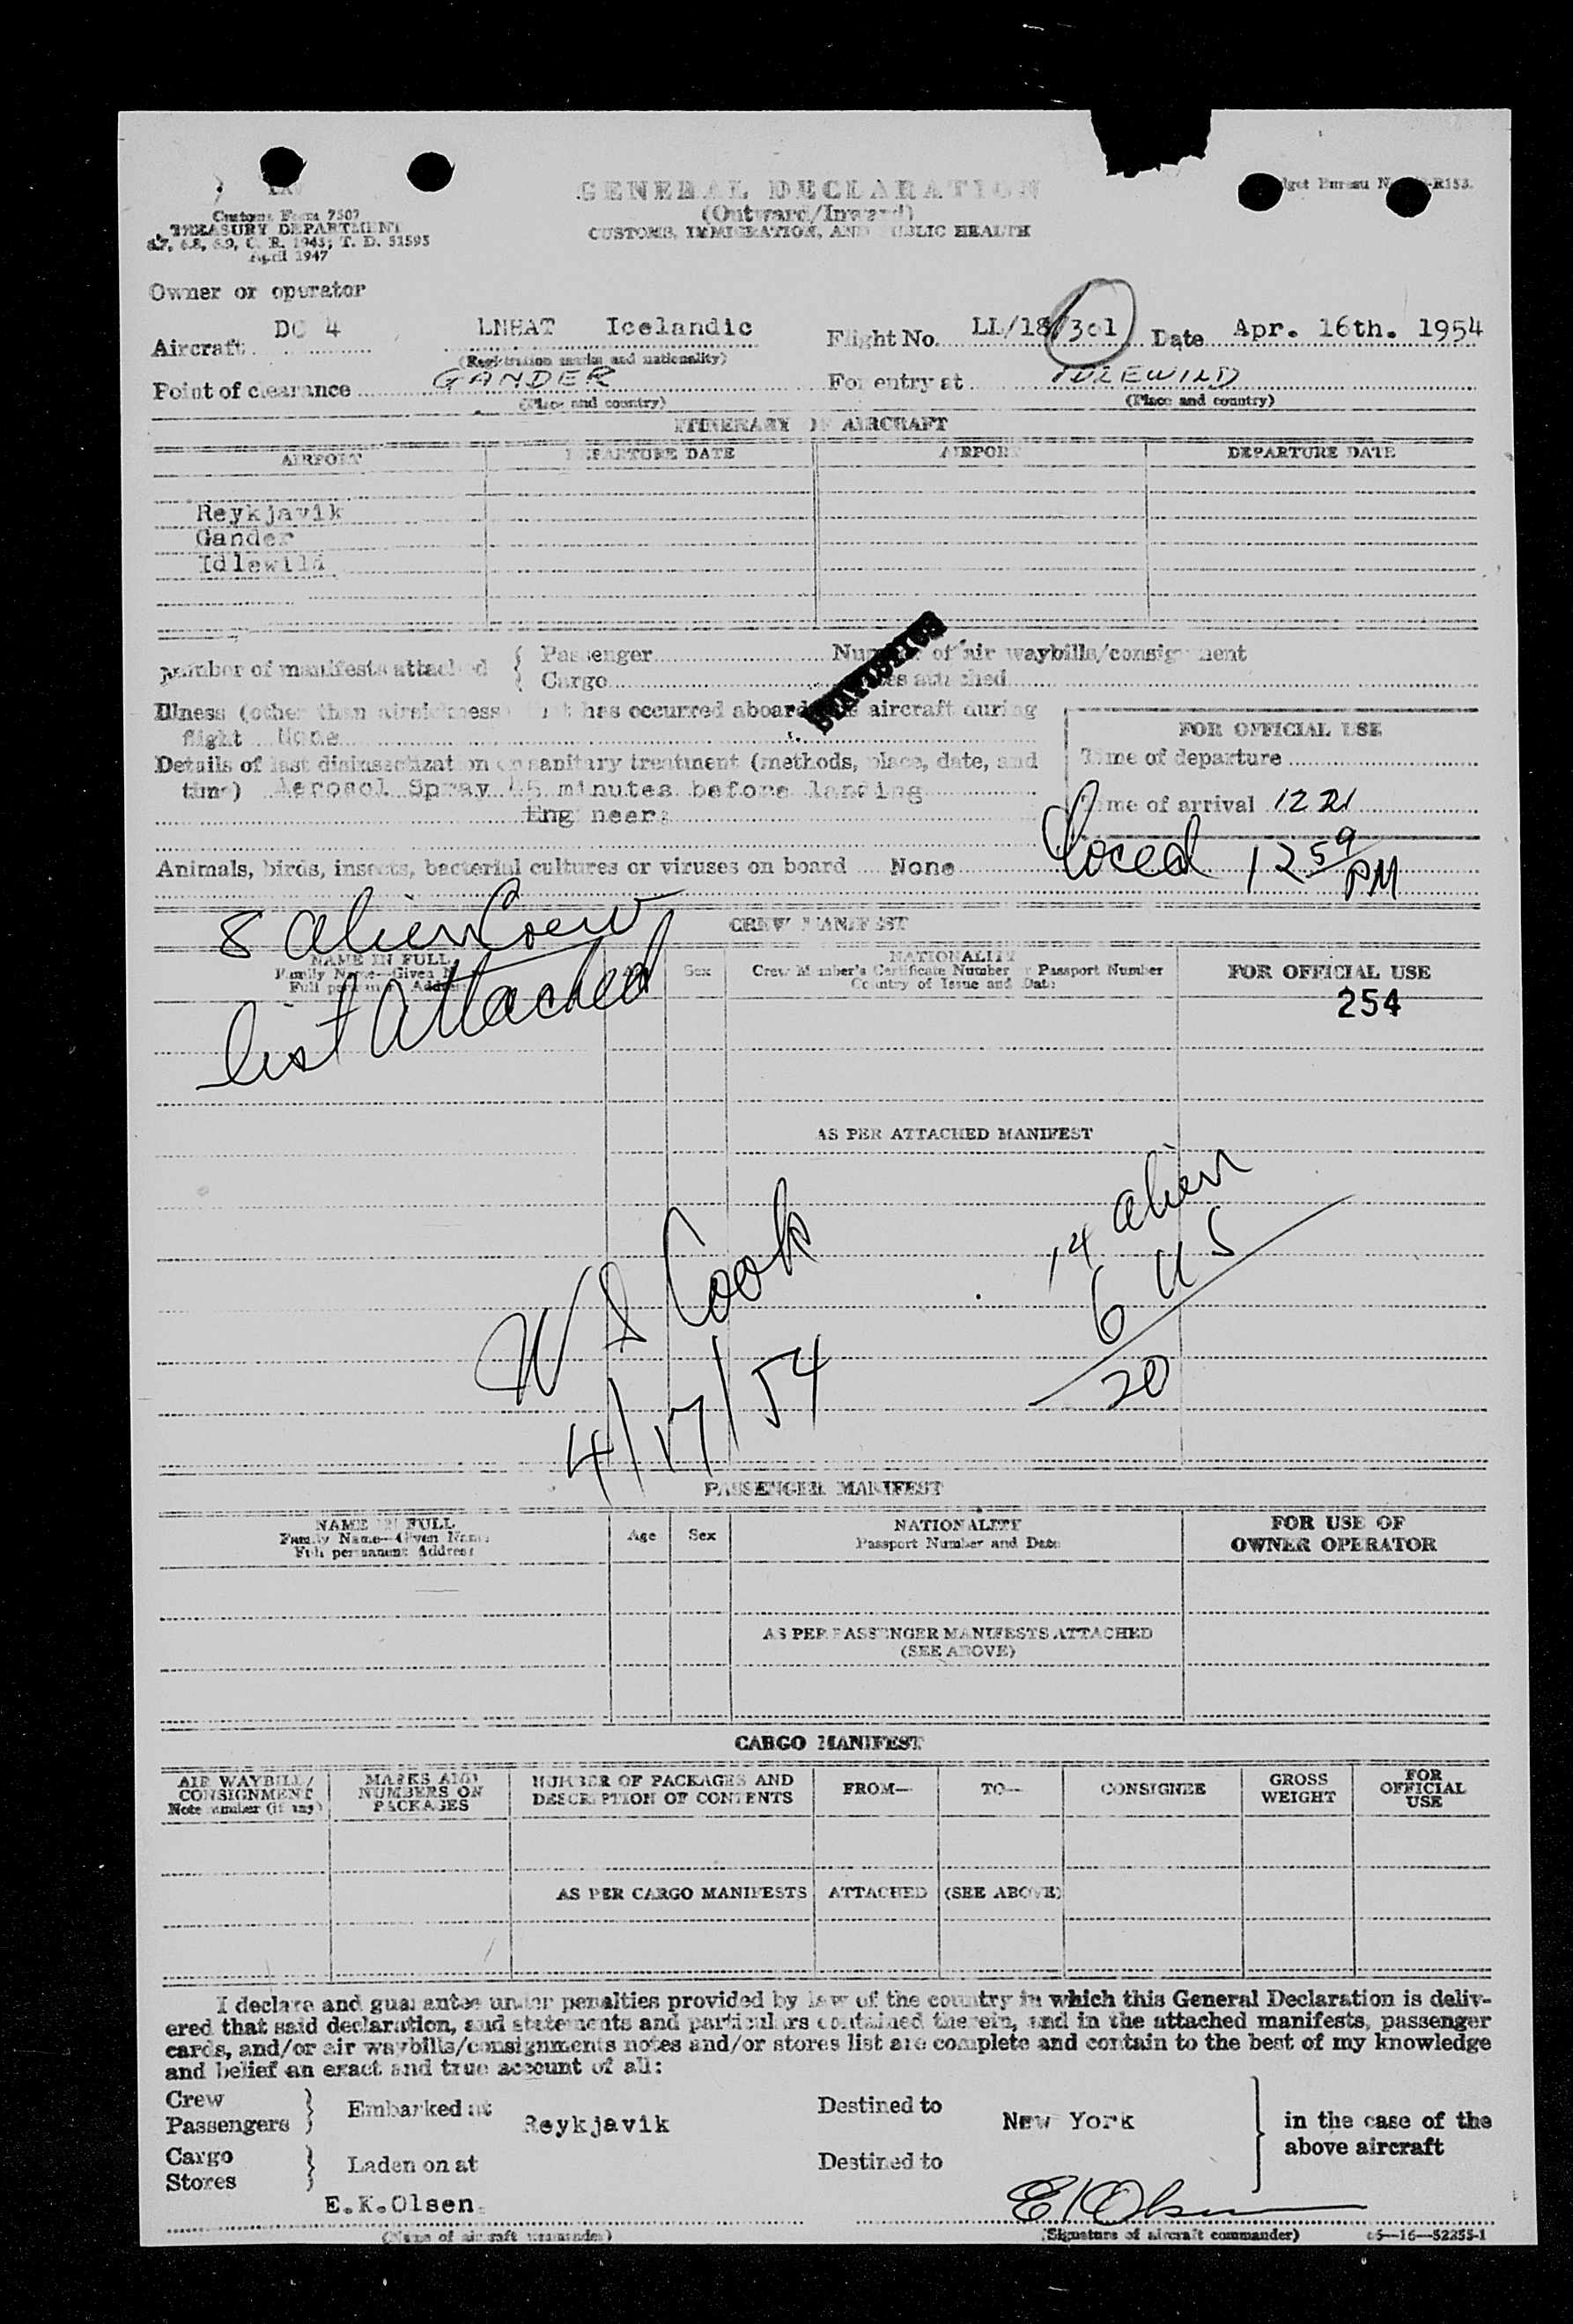 GENERAL DECLARATION
(Outward/Inward)
CUSTOMS, IMMIGRATION, AND PUBLIC HEALTH
Customs Form 7507
TREASURY DEPARTMENT
C. R. 1943; T. D. 51595
April 1947
Owner or operator
Aircraft DC 4 LNHAT Icelandic Flight No. LL/18/301 Date Apr. 16th. 1954
(Registration marks and nationality)
Point of clearance GANDER For entry at IDLEWILD
(Place and country) (Place and country)
ITINERARY OF AIRCRAFT
AIRPORT DEPARTURE DATE AIRPORT DEPARTURE DATE
Reykjavik
Gander
Idlewild
Number of manifests attached { Passenger Number of air waybills/consignment
Cargo notes attached
STATISTICS
Illness (other than airsickness) that has occurred aboard the aircraft during
flight None
FOR OFFICIAL USE
Time of departure
Details of last disinsectization or sanitary treatment (methods, place, date, and
time) Aerosol Spray 45 minutes before landing
Engineer:
Time of arrival 12 21
Animals, birds, insects, bacterial cultures or viruses on board None
12 59 PM
8 alien Crew
list attached
CREW MANIFEST
NAME IN FULL
Family Name—Given Name
Full permanent Address
Sex
NATIONALITY
Crew Member's Certificate Number or Passport Number
Country of Issue and Date
FOR OFFICIAL USE
254
AS PER ATTACHED MANIFEST
14 alien
6 US
20
W S Cook
4/17/54
PASSENGER MANIFEST
NAME IN FULL
Family Name—Given Name
Full permanent Address
Age Sex
NATIONALITY
Passport Number and Date
FOR USE OF
OWNER OPERATOR
AS PER PASSENGER MANIFESTS ATTACHED
(SEE ABOVE)
CARGO MANIFEST
AIR WAYBILL/
CONSIGNMENT
Note number (if any)
MARKS AND
NUMBERS ON
PACKAGES
NUMBER OF PACKAGES AND
DESCRIPTION OF CONTENTS
FROM— TO— CONSIGNEE
GROSS
WEIGHT
FOR
OFFICIAL
USE
AS PER CARGO MANIFESTS ATTACHED (SEE ABOVE)
I declare and guarantee under penalties provided by law of the country in which this General Declaration is deliv-
ered that said declaration, and statements and particulars contained therein, and in the attached manifests, passenger
cards, and/or air waybills/consignments notes and/or stores list are complete and contain to the best of my knowledge
and belief an exact and true account of all:
Crew
Passengers } Embarked at Reykjavik Destined to New York } in the case of the
above aircraft
Cargo
Stores } Laden on at Destined to
E.K.Olsen. EKOlsen
(Name of aircraft commander) (Signature of aircraft commander) 16—52355-1